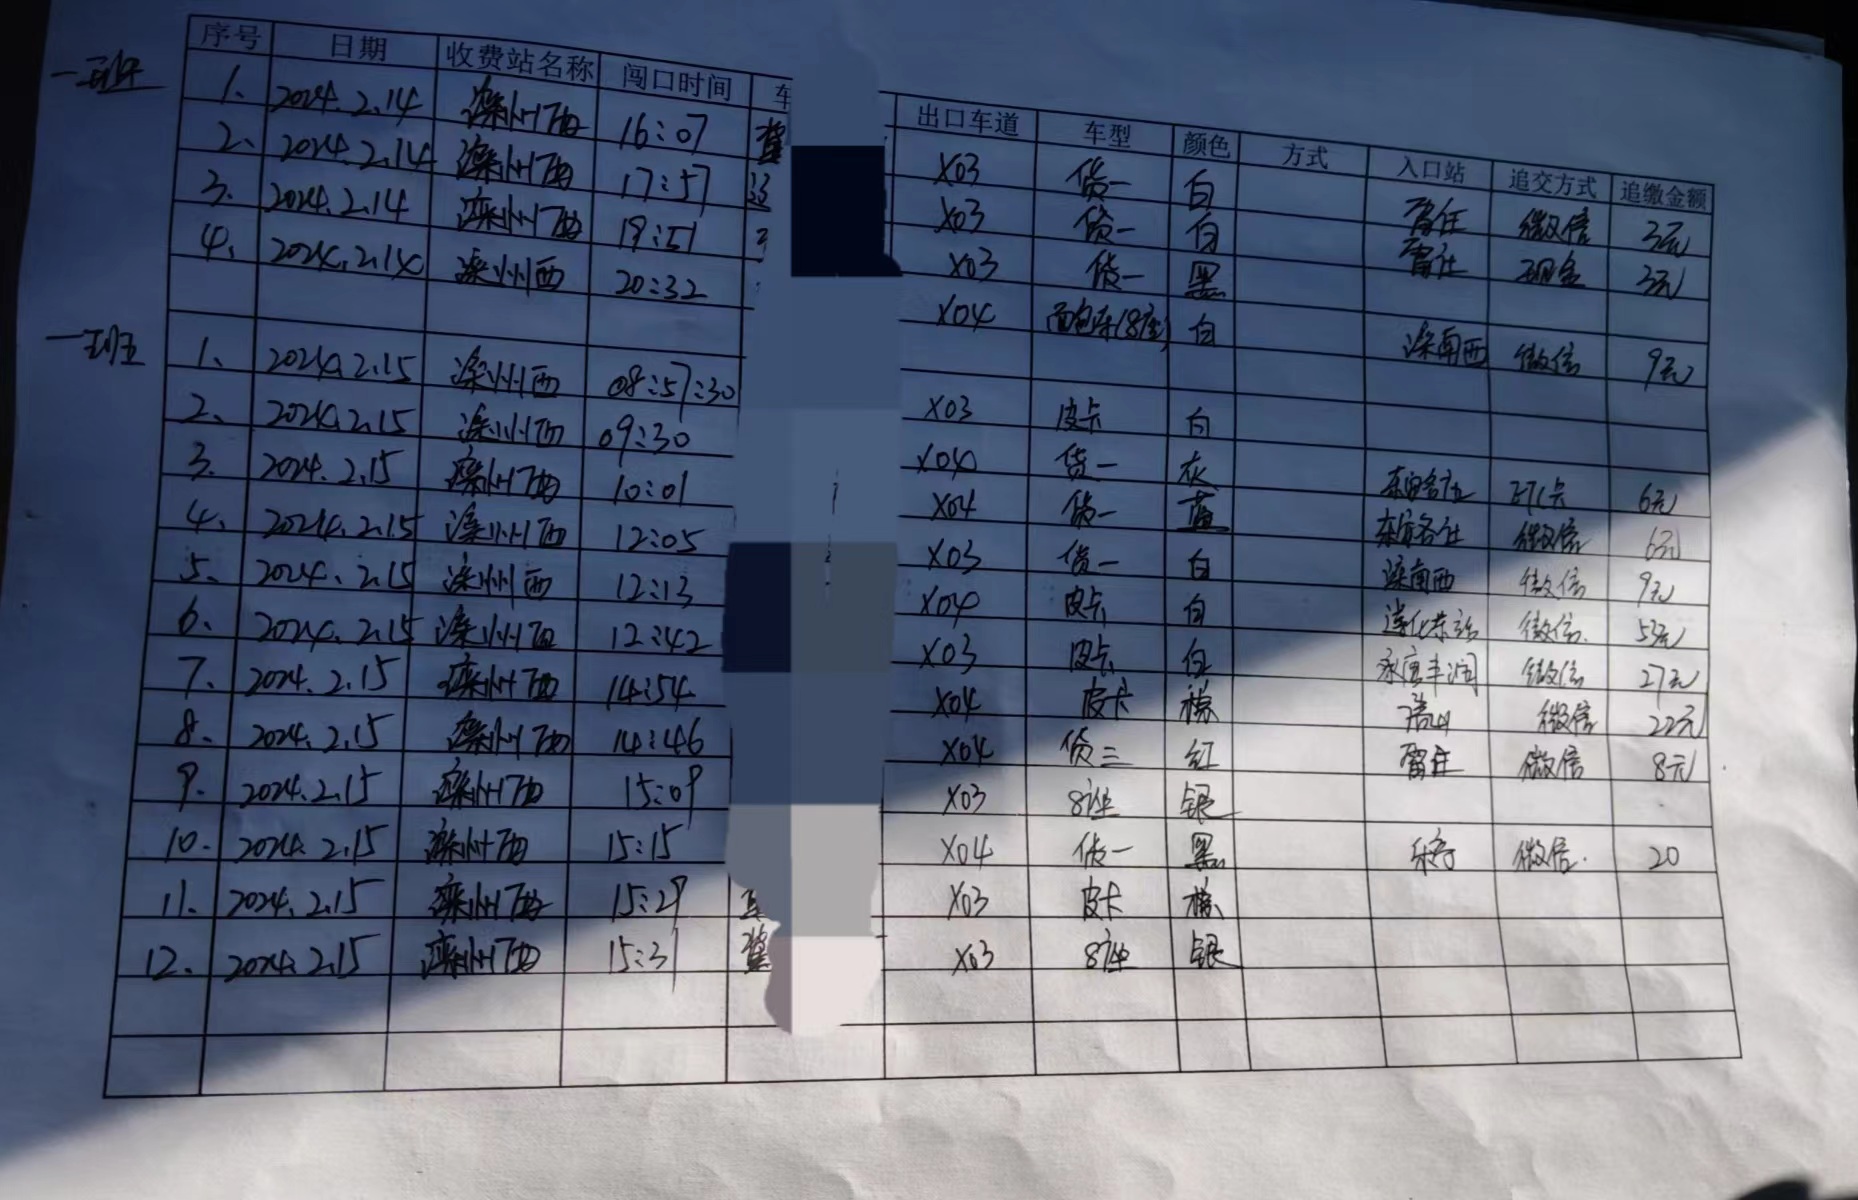 序号 日期 收费站名称 闯口时间 车 出口车道 车型 颜色 方式 入口站 追交方式 追缴金额
一班 1. 2024.2.14 滦州西 16:07 冀 X03 货一 白 雷庄 微信 3元
2. 2024.2.14 滦州西 17:57 X03 货一 白 雷庄 现金 3元
3. 2024.2.14 滦州西 19:51 X03 货一 黑
4. 2024.2.14 滦州西 20:32 X04 面包车(8座) 白 滦南西 微信 9元
一班 1. 2024.2.15 滦州西 08:57:30 X03 皮卡 白
2. 2024.2.15 滦州西 09:30 X04 货一 灰 ETC卡 6元
3. 2024.2.15 滦州西 10:01 X04 货一 蓝 微信 6元
4. 2024.2.15 滦州西 12:05 X03 货一 白 滦南西 微信 9元
5. 2024.2.15 滦州西 12:13 X04 皮卡 白 遵化东站 微信 53元
6. 2024.2.15 滦州西 12:42 X03 皮卡 白 丰润 微信. 27元
7. 2024.2.15 滦州西 14:54 X04 皮卡 棕 微信 22元
8. 2024.2.15 滦州西 14:46 X04 货三 红 雷庄 微信 8元
9. 2024.2.15 滦州西 15:09 X03 8座 银
10. 2024.2.15 滦州西 15:15 X04 货一 黑 微信. 20
11. 2024.2.15 滦州西 15:29 X03 皮卡 棕
12. 2024.2.15 滦州西 15:31 冀 X03 8座 银